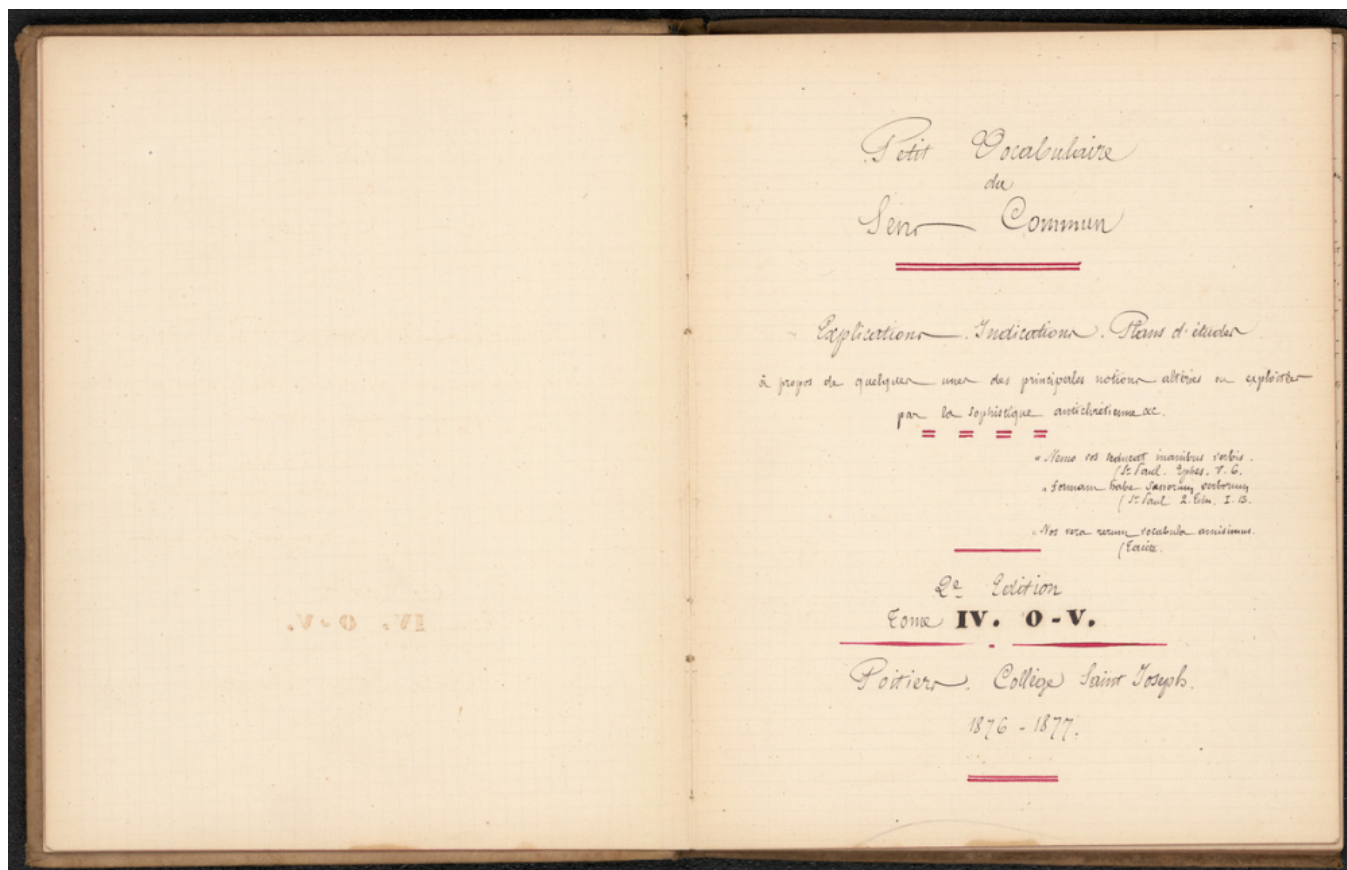 Petit Vocabulaire
du
Sens Commun
Explications. Indications. Plans d'études
à propos de quelques unes des principales notions altérées ou exploitées
par la sophistique antichrétienne &c.
« Nemo vos seducat inanibus verbis.
(St Paul. Ephes. V. 6.
« Formam habe sanorum verborum
(St Paul 2. Tim. I. 13.
« Nos vera rerum vocabula amisimus.
(Tacite.
2e Edition
Tome IV. O-V.
Poitiers. Collège Saint Joseph.
1876 - 1877.